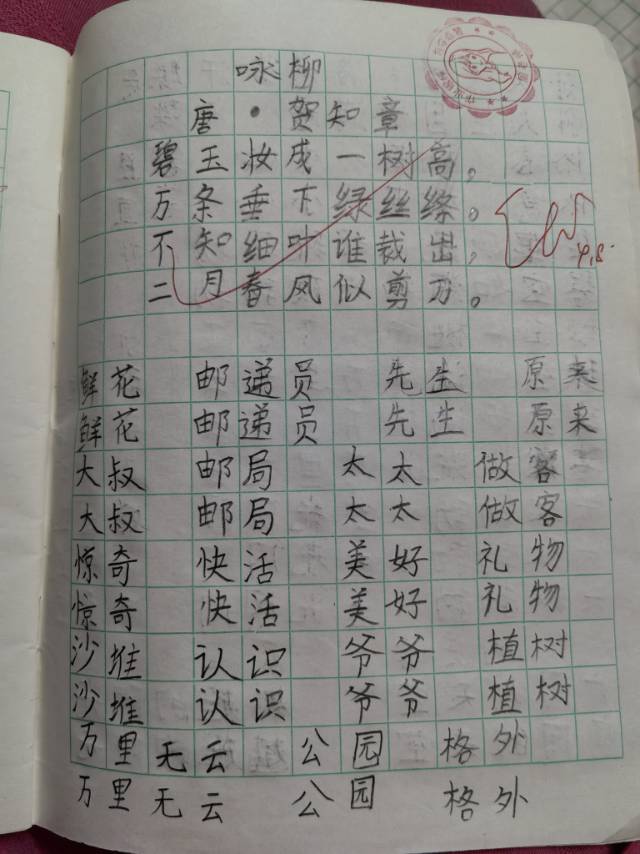 咏柳
唐·贺知章
碧玉妆成一树高，
万条垂下绿丝绦。
不知细叶谁裁出，
二月春风似剪刀。
鲜花 邮递员 先生 原来
鲜花 邮递员 先生 原来
大叔 邮局 太太 做客
大叔 邮局 太太 做客
惊奇 快活 美好 礼物
惊奇 快活 美好 礼物
沙堆 认识 爷爷 植树
沙堆 认识 爷爷 植树
万里无云 公园 格外
万里无云 公园 格外